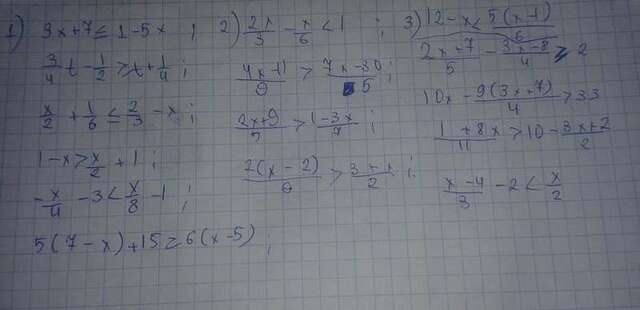 1) 3x+7≤1-5x ;
3/4 t - 1/2 > t + 1/4 ;
x/2 + 1/6 ≤ 2/3 - x ;
1-x > x/2 + 1 ;
-x/4 - 3 < x/8 - 1 ;
5(7-x)+15≥6(x-5) ;
2) 2x/3 - x/6 < 1 ;
> (7x-30)/5 ;
> (1-3x)/7 ;
(x-2)/6 >
3) 12-x ≤ 5(x-1)/6
(2x+7)/5 - (3x-8)/4 ≥ 2
10x - 9(3x+7)/4 > 33
(1+8x)/11 > 10 - (3x+2)/2
(x-4)/3 - 2 < x/2